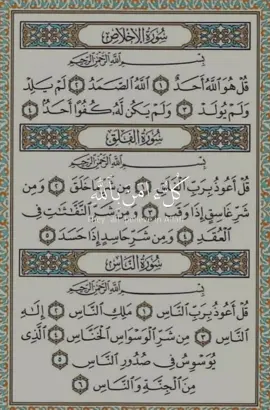 سُورَةُ الإِخْلَاصِ
بِسْمِ اللَّهِ الرَّحْمَٰنِ الرَّحِيمِ
قُلْ هُوَ اللَّهُ أَحَدٌ ١ اللَّهُ الصَّمَدُ ٢ لَمْ يَلِدْ
وَلَمْ يُولَدْ ٣ وَلَمْ يَكُن لَّهُ كُفُوًا أَحَدٌ ٤
سُورَةُ الْفَلَقِ
بِسْمِ اللَّهِ الرَّحْمَٰنِ الرَّحِيمِ
قُلْ أَعُوذُ بِرَبِّ الْفَلَقِ ١ مِن شَرِّ مَا خَلَقَ ٢ وَمِن
كُلٌّ آمَنَ بِاللَّهِ
شَرِّ غَاسِقٍ إِذَا وَقَبَ ٣ وَمِن شَرِّ النَّفَّاثَاتِ فِي
الْعُقَدِ ٤ وَمِن شَرِّ حَاسِدٍ إِذَا حَسَدَ ٥
سُورَةُ النَّاسِ
بِسْمِ اللَّهِ الرَّحْمَٰنِ الرَّحِيمِ
قُلْ أَعُوذُ بِرَبِّ النَّاسِ ١ مَلِكِ النَّاسِ ٢ إِلَٰهِ
النَّاسِ ٣ مِن شَرِّ الْوَسْوَاسِ الْخَنَّاسِ ٤ الَّذِي
يُوَسْوِسُ فِي صُدُورِ النَّاسِ ٥
مِنَ الْجِنَّةِ وَالنَّاسِ ٦